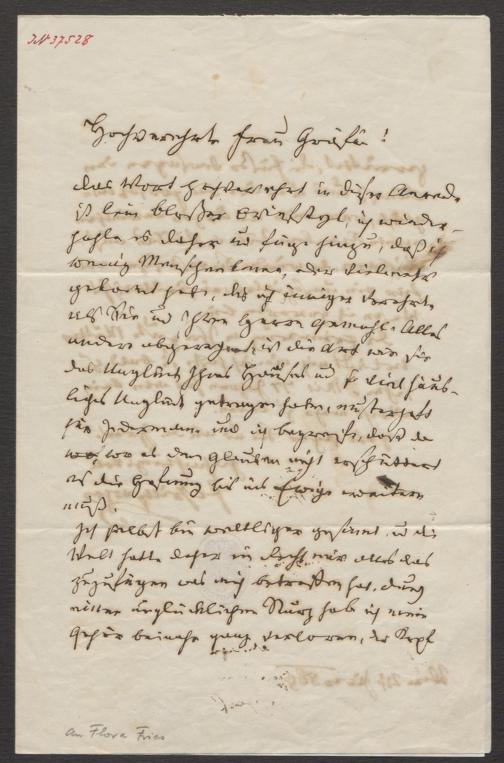 JN 37528
Hochverehrte Frau Gräfin!
Das Wort hochverehrt in dieser Anrede
ist kein bloßer Briefstyl, ich wieder-
hohle es daher und füge hinzu, daß ich
wenig Menschen kenne, oder vielmehr
gekannt habe, die ich inniger verehrte
als Sie und Ihren Herrn Gemahl. Alles
andere abgerechnet, ist die Art wie Sie
das Unglück Ihres Hauses und so viel häus-
liches Unglück getragen haben, musterhaft
für Jedermann und ich begreife, daß da
wo, wo es den Glauben nicht erschüttert
es die Hofnung bis ins Ewige erweitern
muß.
Ich selbst bin weltlicher gesinnt, und die
Welt hatte daher ein Recht mir alles das
zuzufügen was mich betroffen hat. Durch
einen unglücklichen Sturz hab ich mein
Gehör beinahe ganz verloren, der Kopf
An Flora Fries